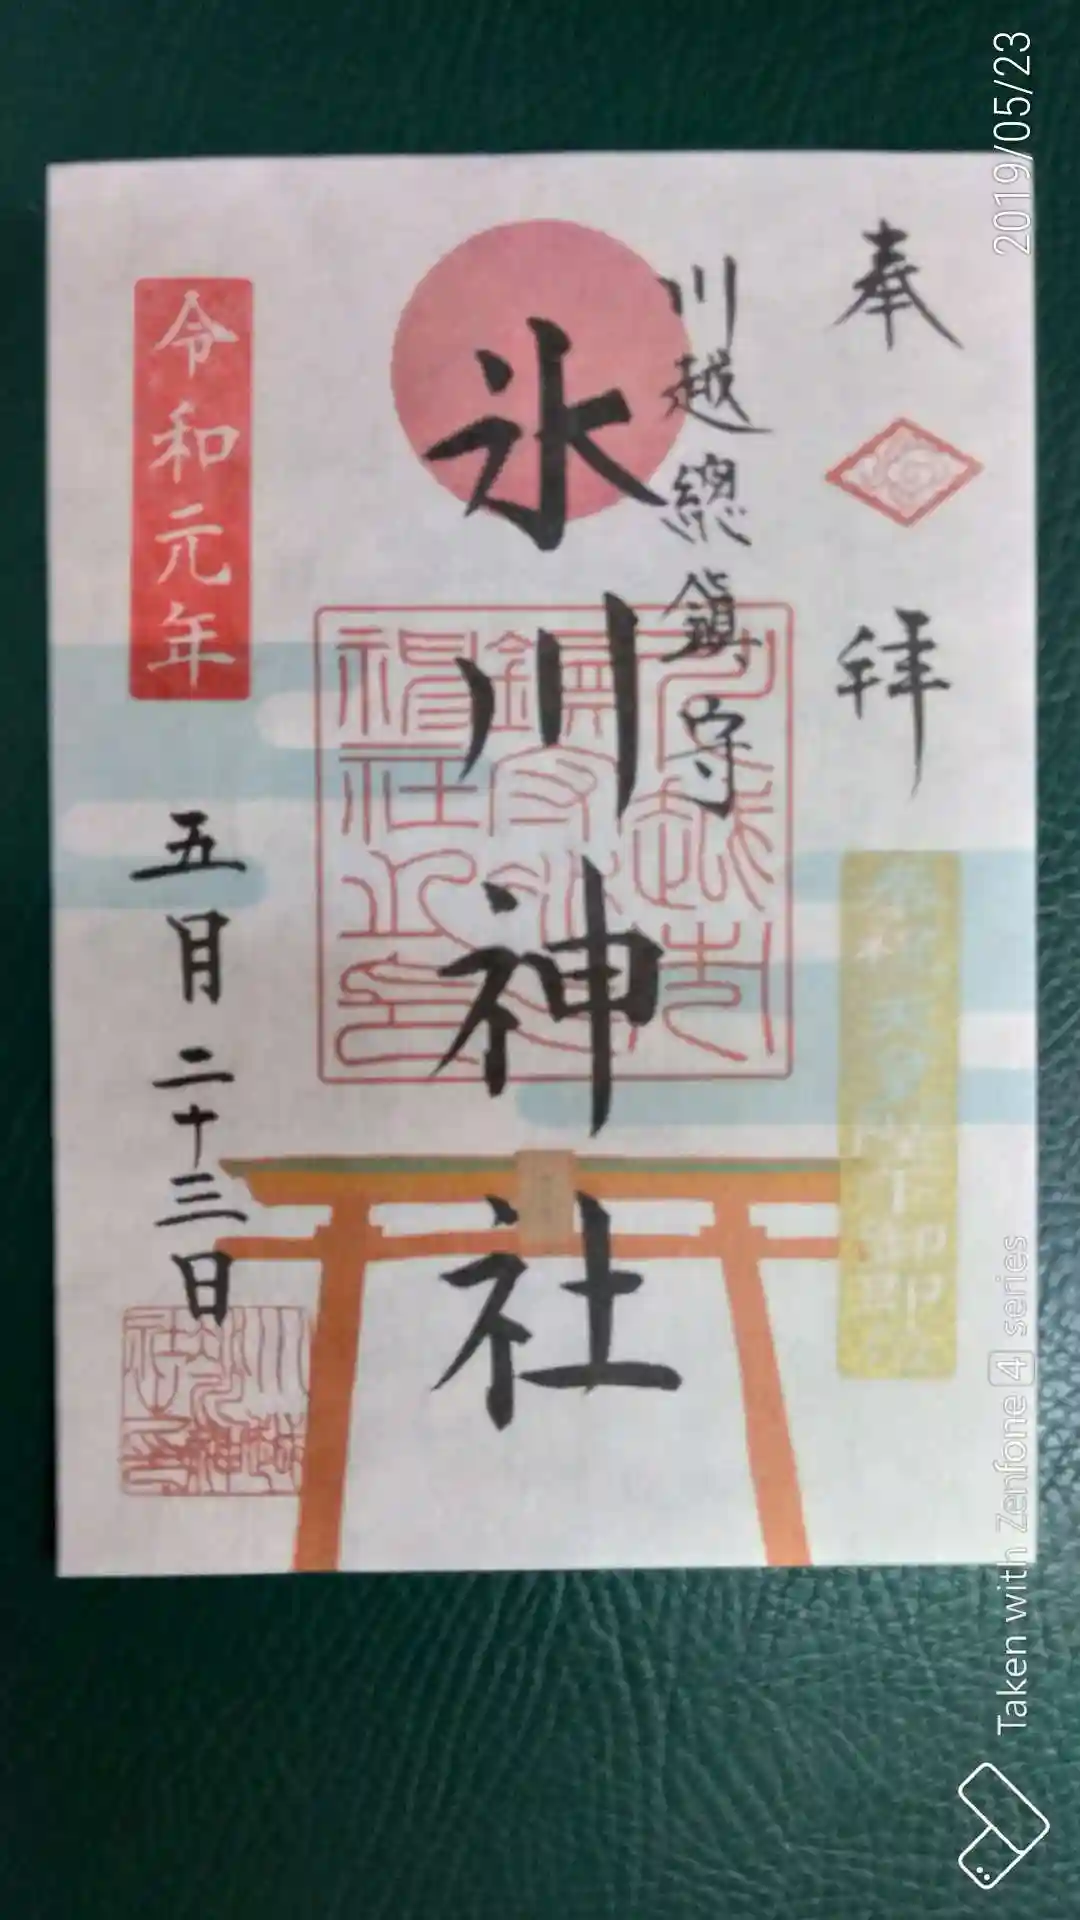 奉拝
川越總鎮守
氷川神社
令和元年
五月二十三日
2019/05/23
Taken with Zenfone 4 series